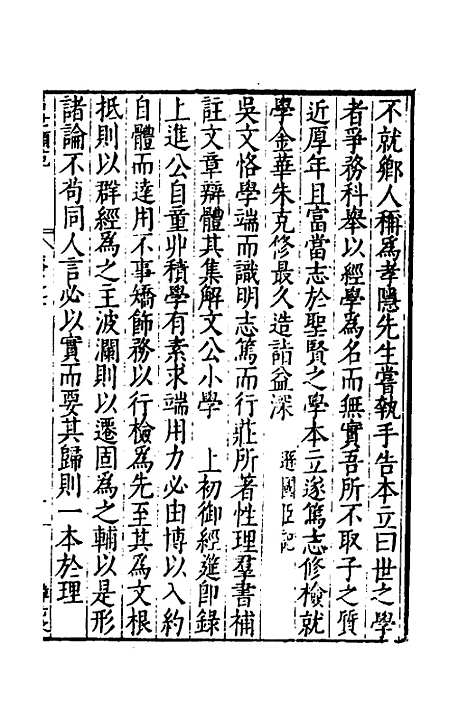 不就鄉人稱爲孝隱先生嘗執手告本立曰世之學
者爭務科舉以經學爲名而無實吾所不取子之質
近厚年且富當志於聖賢之學本立遂篤志修檢就
學金華朱克修最久造詣益深 遜國臣記
吳文恪學端而識明志篤而行莊所著性理羣書補
註文章辨體其集解文公小學 上初御經筵卽錄
上進公自童丱積學有素求端用力必由博以入約
自體而達用不事矯飾務以行檢爲先至其爲文根
抵則以群經爲之主波瀾則以遷固爲之輔以是形
諸論不苟同人言必以實而要其歸則一本於理